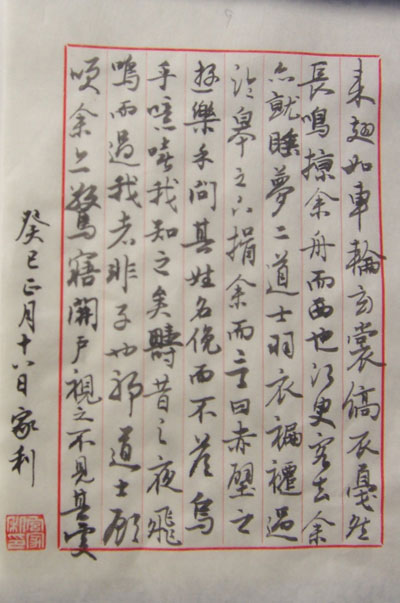 来翅如車輪玄裳縞衣戛然
長鳴掠余舟而西也須臾客去余
亦就睡夢二道士羽衣過
臨皋之下揖余而言曰赤壁之
遊樂乎問其姓名俛而不答烏
乎噫嘻我知之矣疇昔之夜飛
鳴而過我者非子也邪道士顧
咲余亦驚寤開戶視之不見其處
癸巳正月十八日家利